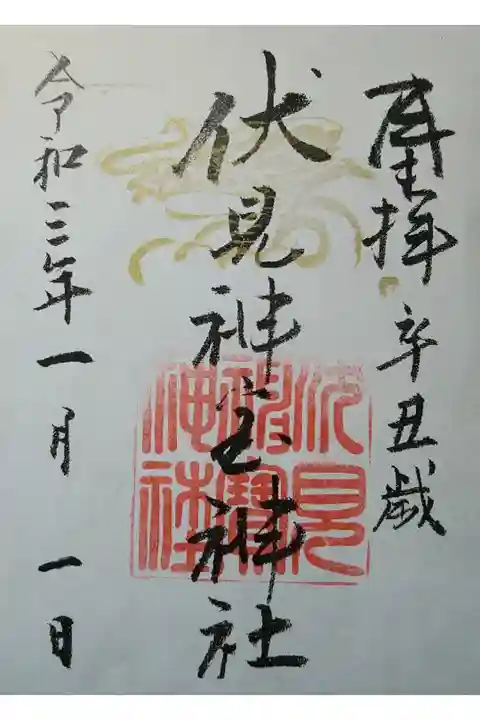 拝 辛丑歳
伏見神宝神社
令和三年一月一日
伏見
神寶
神社